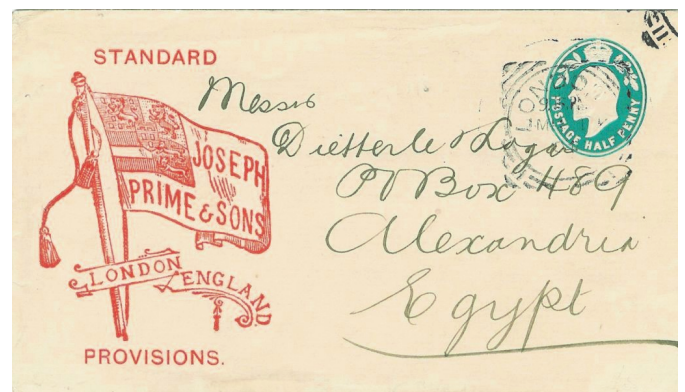 STANDARD
JOSEPH
PRIME & SONS
LONDON
ENGLAND
PROVISIONS.
POSTAGE HALF PENNY
LONDON
Messrs
Dietterle & Logan
PO Box 489
Alexandria
Egypt